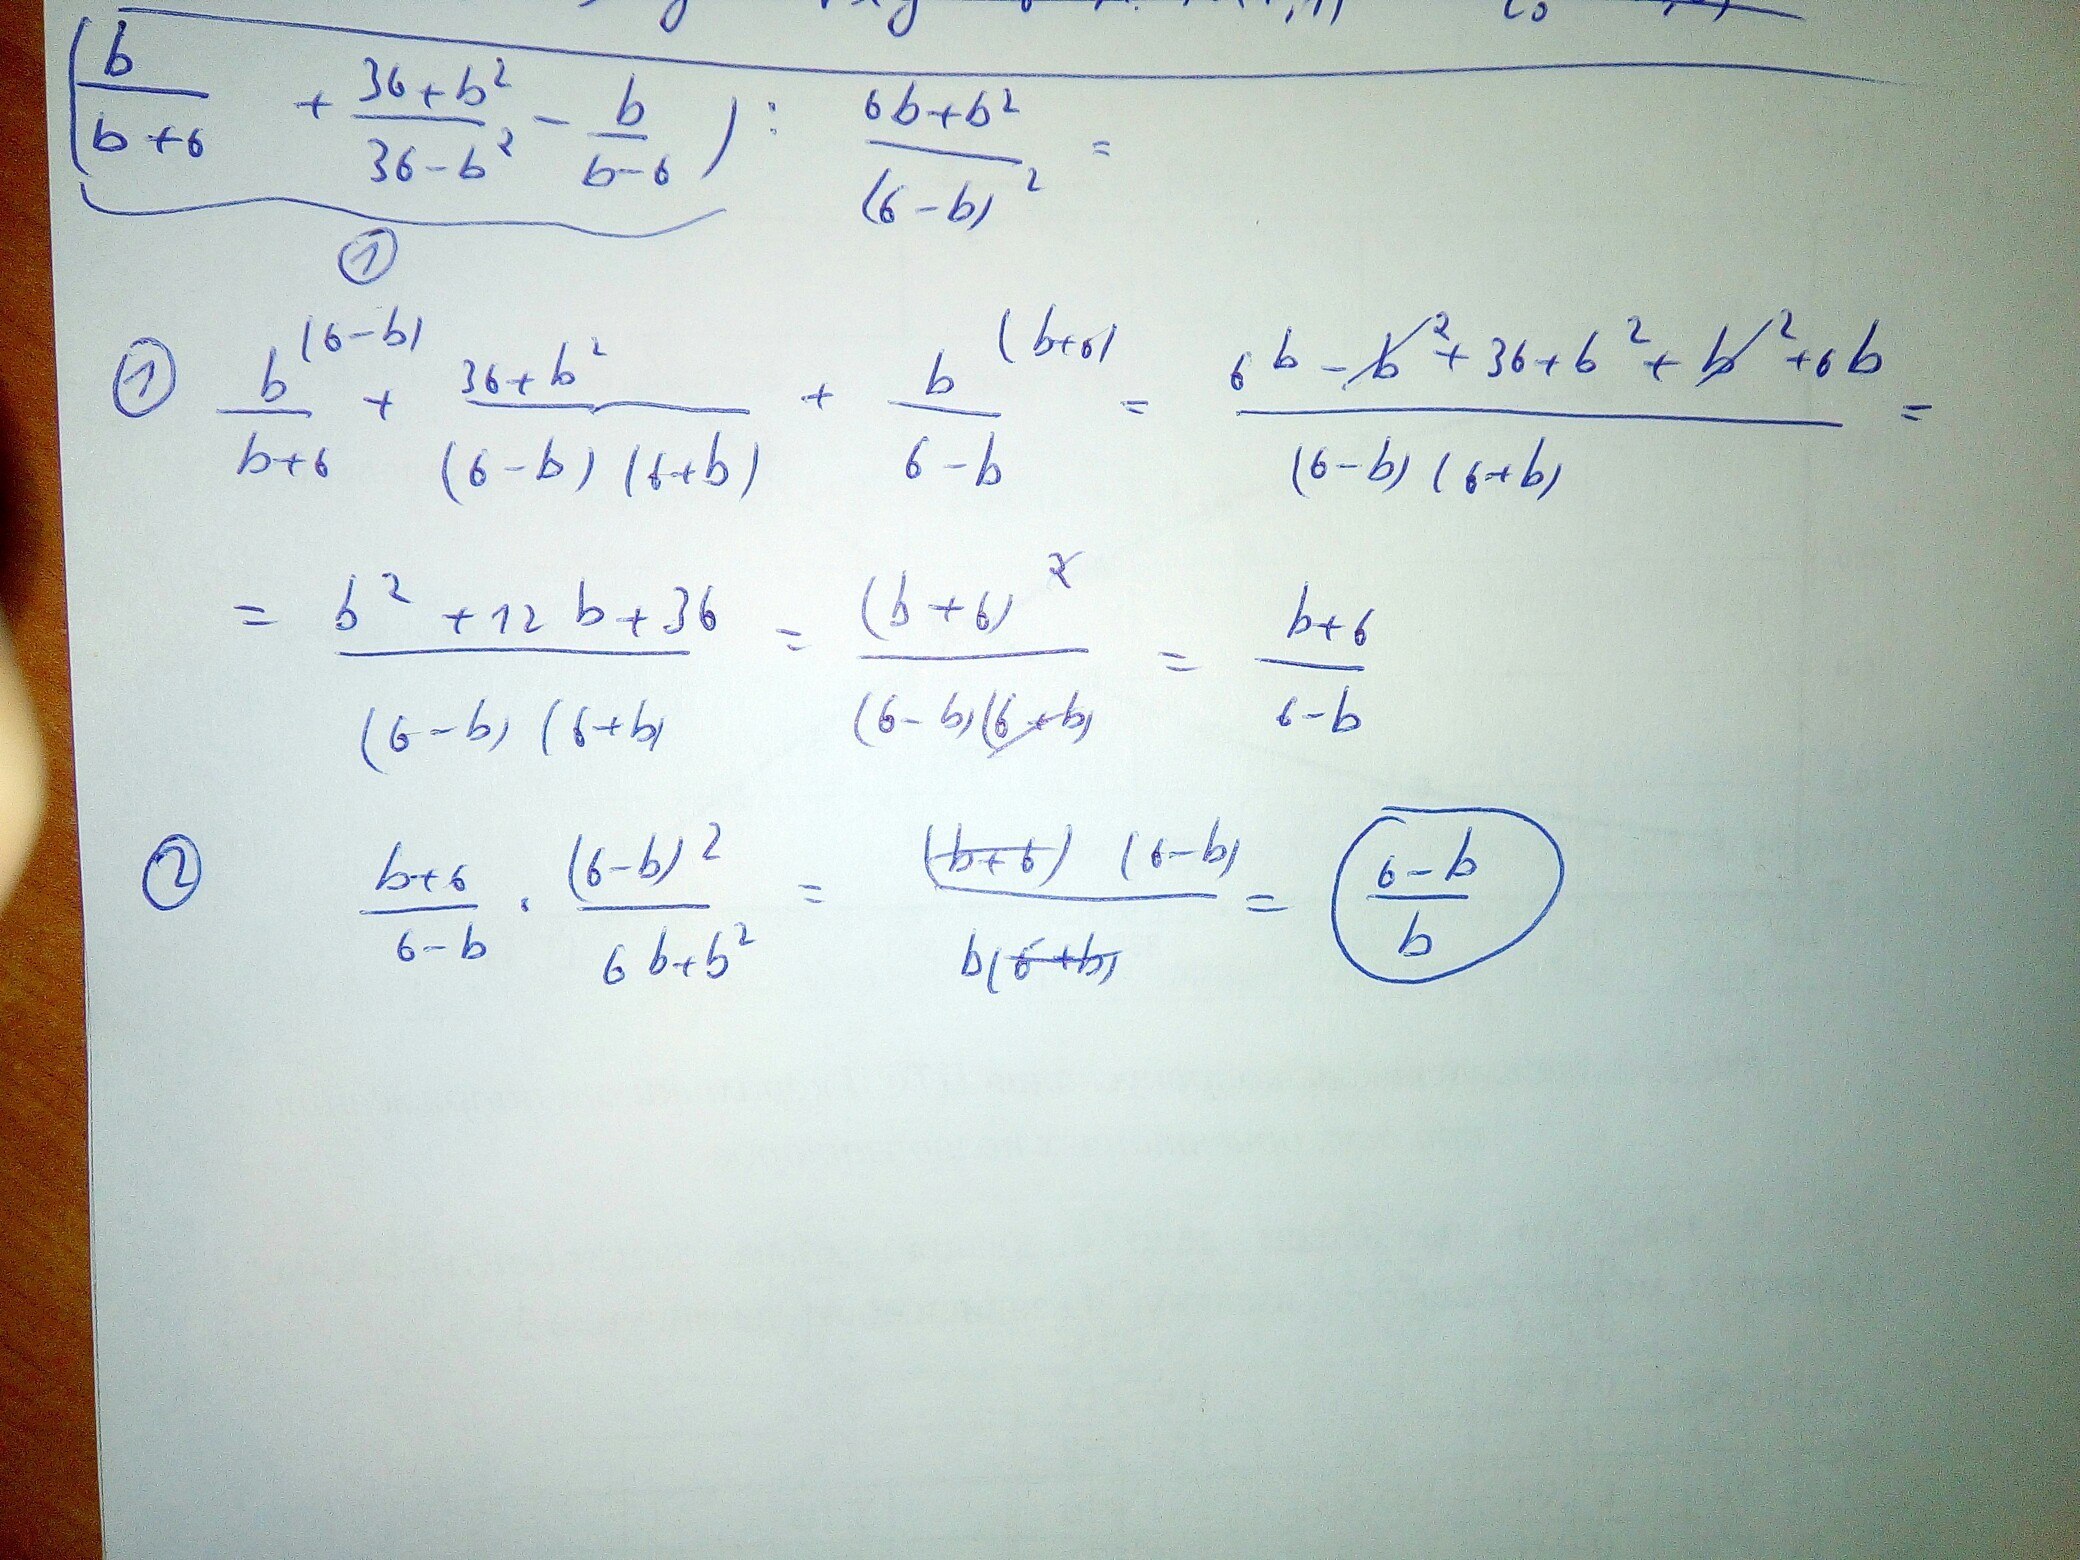 (b/(b+6) + (36+b²)/(36-b²) - b/(b-6)) : (6b+b²)/(6-b)² =
①
① b(6-b)/(b+6) + (36+b²)/((6-b)(6+b)) + b(b+6)/(6-b) = (6b-b²+36+b²+b²+6b)/((6-b)(6+b)) =
= (b²+12b+36)/((6-b)(6+b)) = (b+6)²/((6-b)(6+b)) = (b+6)/(6-b)
② (b+6)/(6-b) · (6-b)²/(6b+b²) = ((b+6)(6-b))/(b(6+b)) = (6-b)/b